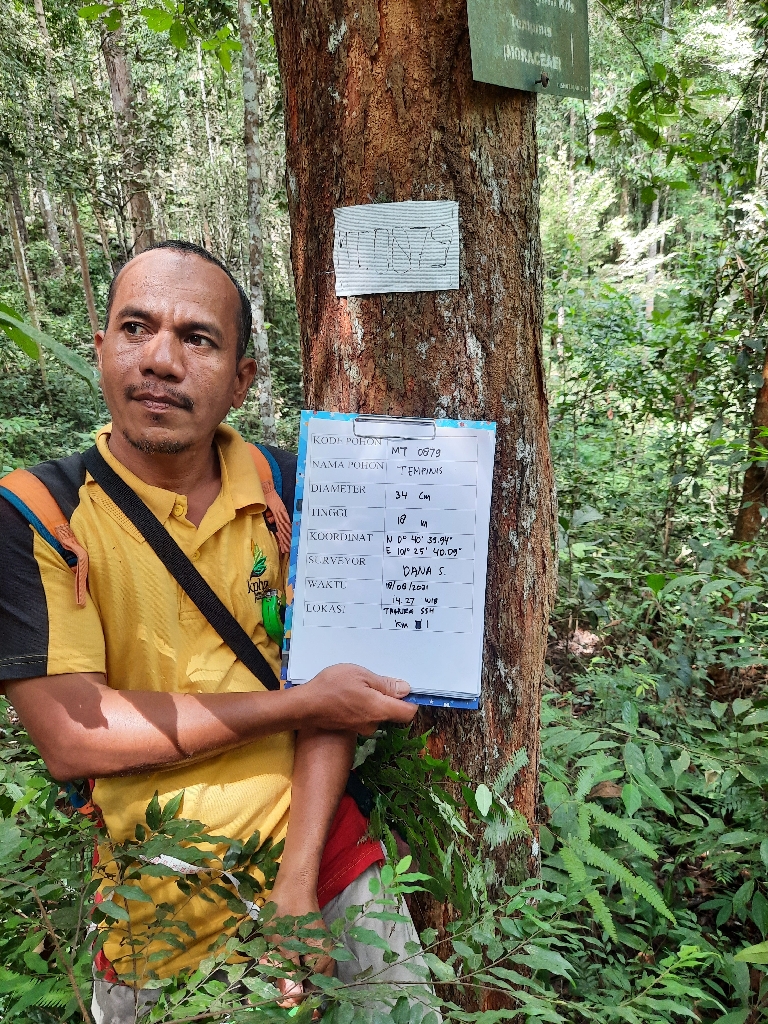 Tempinis
(MORACEAE)
MT 0879
KODE POHON MT 0879
NAMA POHON TEMPINIS
DIAMETER 34 Cm
TINGGI 18 m
KOORDINAT N 0° 40' 39.94"
E 101° 25' 40.09"
SURVEYOR DANA S.
WAKTU 18/08/2021
14.27 WIB
LOKASI TAHURA SSH
Km 1
kphp